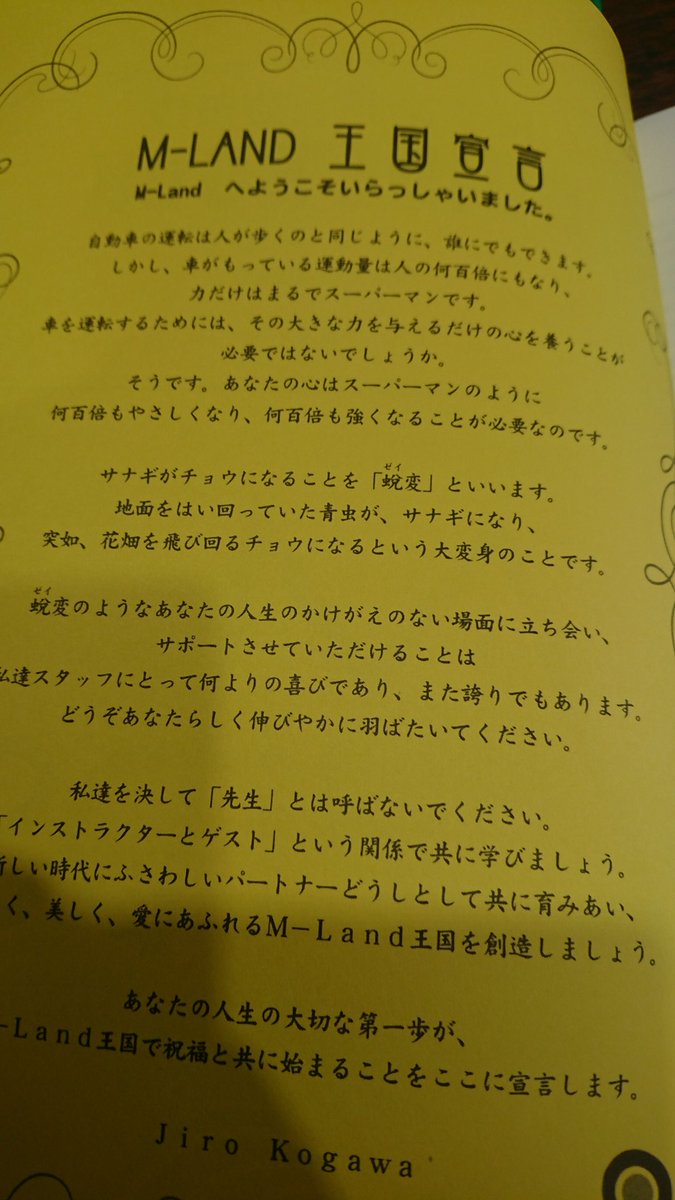 M-LAND 王国宣言
M-Land へようこそいらっしゃいました。
自動車の運転は人が歩くのと同じように、誰にでもできます。
しかし、車がもっている運動量は人の何百倍にもなり、
力だけはまるでスーパーマンです。
車を運転するためには、その大きな力を与えるだけの心を養うことが
必要ではないでしょうか。
そうです。あなたの心はスーパーマンのように
何百倍もやさしくなり、何百倍も強くなることが必要なのです。
サナギがチョウになることを「蛻変」といいます。
地面をはい回っていた青虫が、サナギになり、
突如、花畑を飛び回るチョウになるという大変身のことです。
蛻変のようなあなたの人生のかけがえのない場面に立ち会い、
サポートさせていただけることは
私達スタッフにとって何よりの喜びであり、また誇りでもあります。
どうぞあなたらしく伸びやかに羽ばたいてください。
私達を決して「先生」とは呼ばないでください。
「インストラクターとゲスト」という関係で共に学びましょう。
新しい時代にふさわしいパートナーどうしとして共に育みあい、
く、美しく、愛にあふれるM−Land王国を創造しましょう。
あなたの人生の大切な第一歩が、
−Land王国で祝福と共に始まることをここに宣言します。
Jiro Kogawa